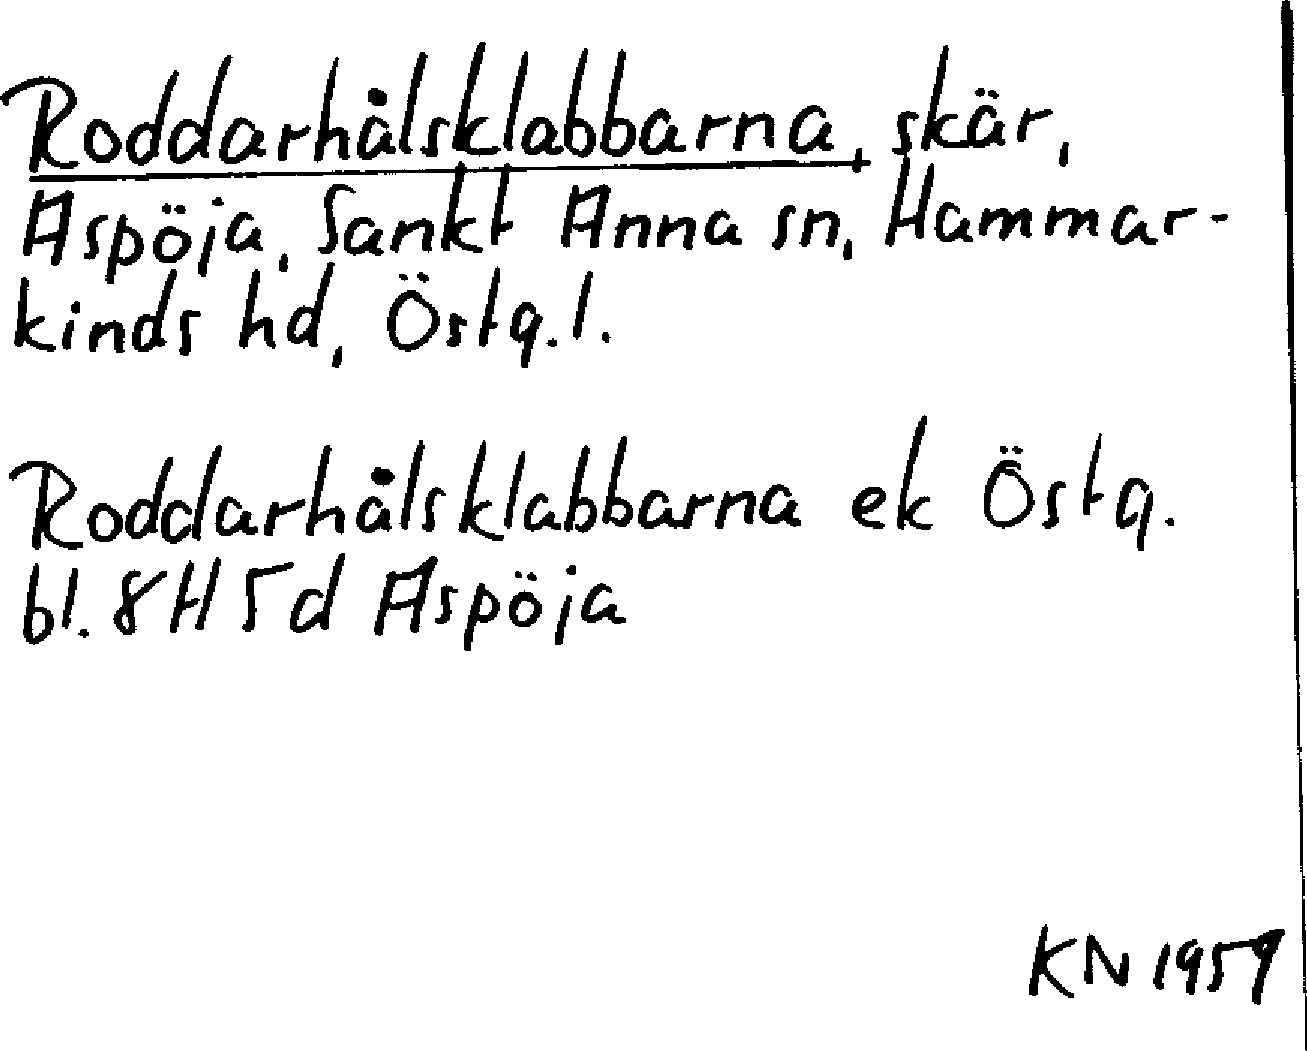 Roddarhålsklabbarna, skär,
Aspöja, Sankt Anna sn, Hammar-
kinds hd, Östg.l.
Roddarhålsklabbarna ek Östg.
bl. 8H5d Aspöja
KN 1959